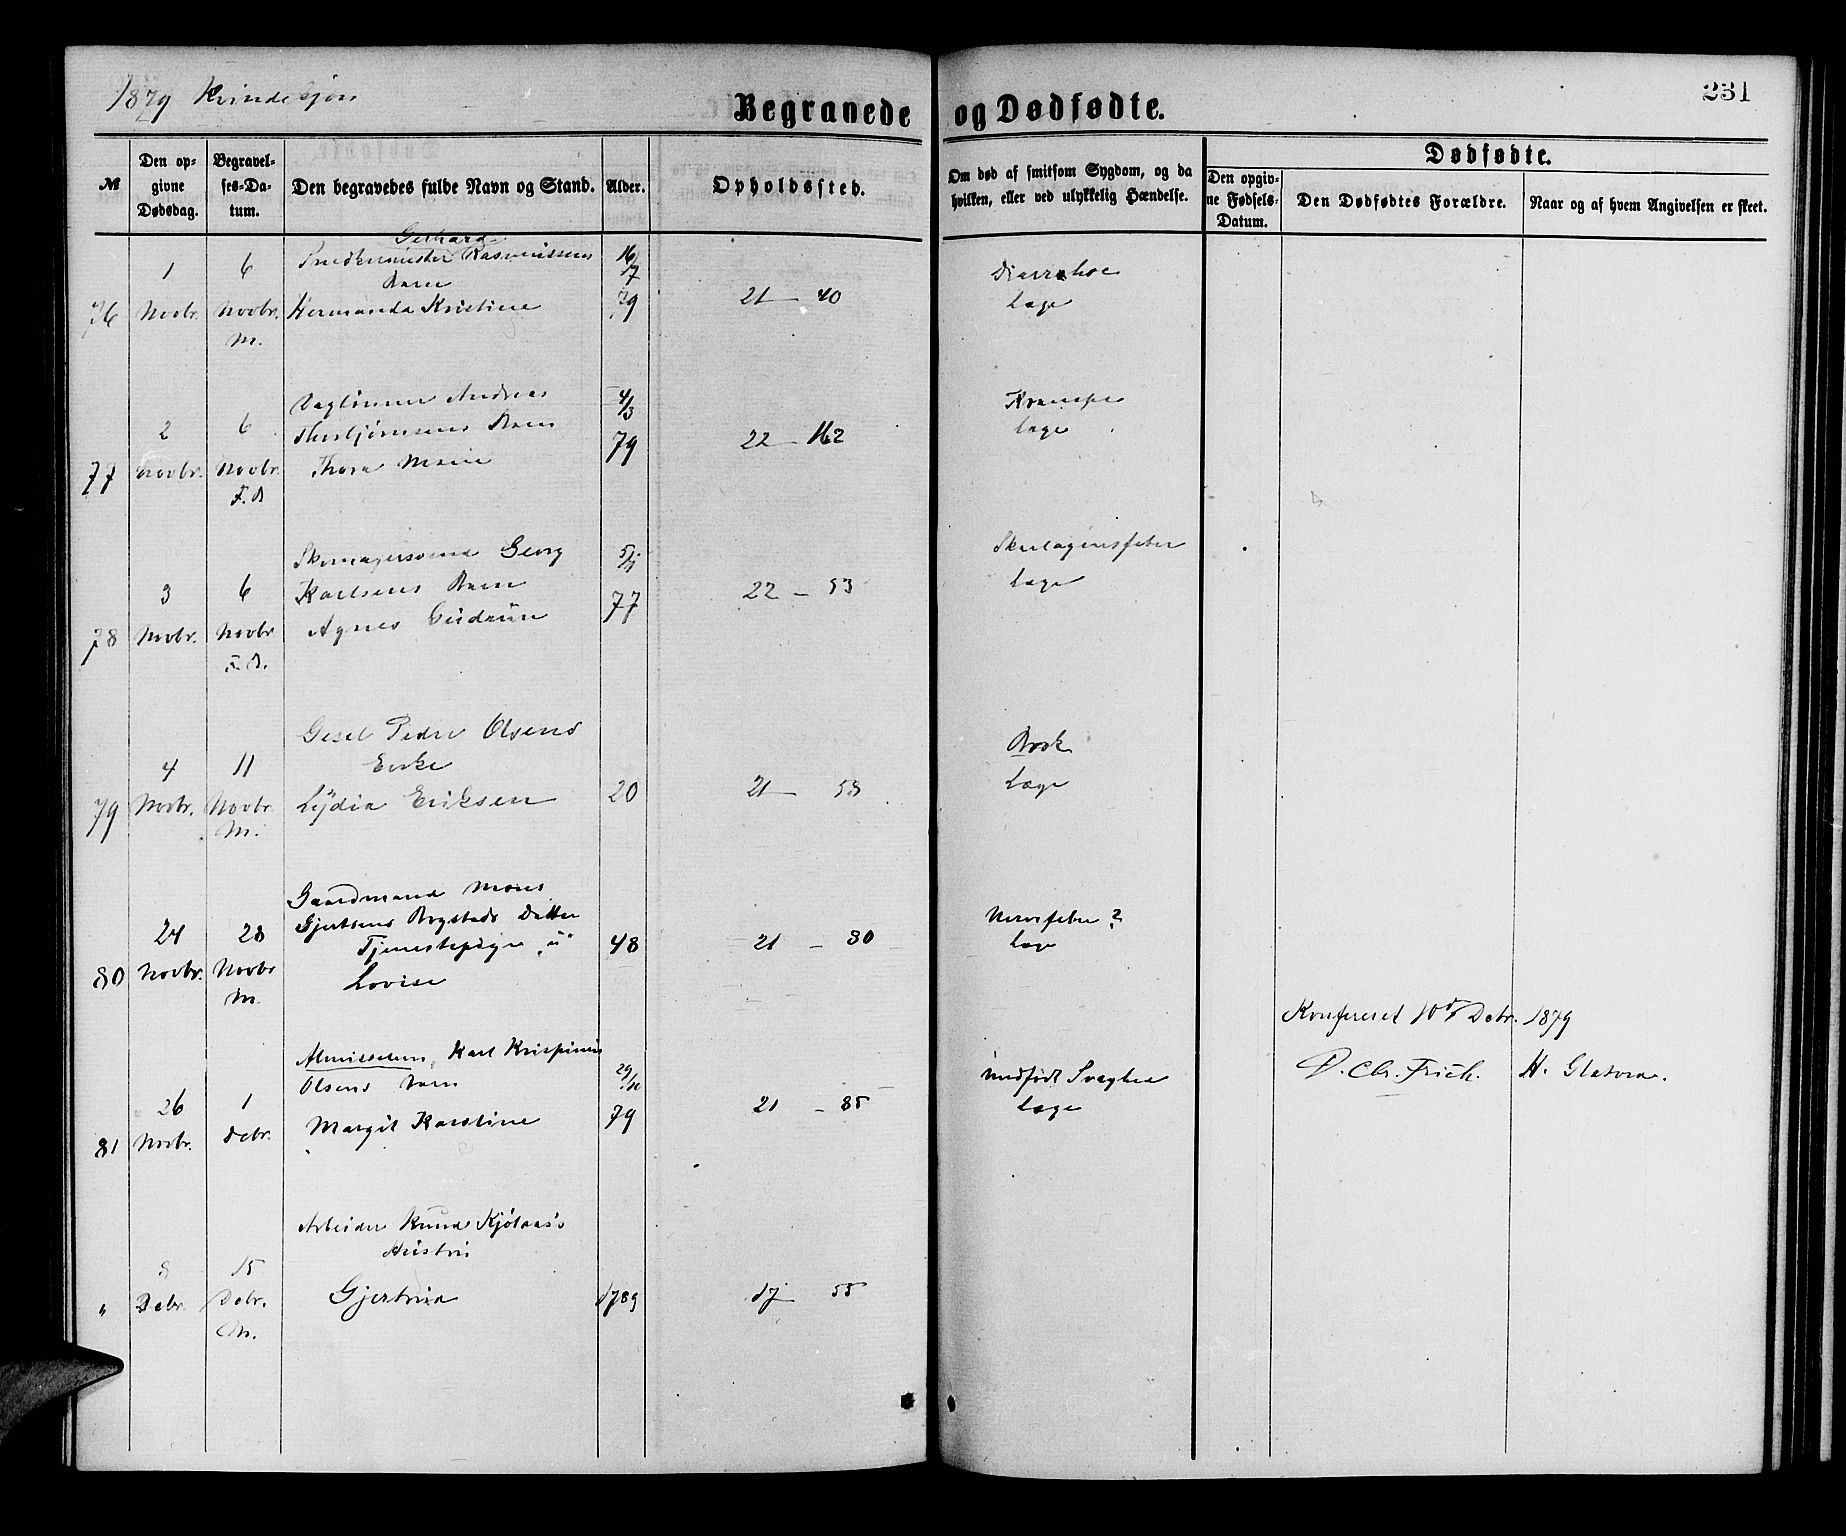 1879 Kvindekjøn
231
Begravede og Dødfødte.
№
Den opgivne Dødsdag.
Begravelses-Datum.
Den begravedes fulde Navn og Stand.
Alder.
Opholdssted.
Om død af smitsom Sygdom, og da hvilken, eller ved ulykkelig Hændelse.
Dødfødte.
Den opgivne Fødsels-Datum.
Den Dødfødtes Forældre.
Naar og af hvem Angivelsen er skeet.
Gerhard
1 6 Snedkermester Rasmussens 16/7 Diarrhoe
Barn
76 Novbr. Novbr. Hermanda Kristine 79 21 — 40 Læge
M.
Daglønner Andreas 4/3 Krampe
2 6 Thorbjørnsens Barn 79 22 — 162 Læge
77 Novbr. Novbr. Thora Marie
F.B
Skomagersvend Georg Skarlagensfeber
3 6 Karlsens Barn 77 22 — 53 Læge
78 Novbr. Novbr Agnes Gudrun
F.B.
Gesel Peder Olsens Brok
4 11 Enke
79 Novbr. Novbr. Lydia Eriksen 20 21 — 53 Læge
M.
Gaardmand Mons
Gjertsens Bogstads Datter Nervefeber ?
24 28 Tjenestepige "u" 48 21 — 80 Læge
80 Novbr. Novbr Lovise
M.
Konfereret 10de Decbr. 1879
Almisselem, Karl Krispinus
Olsens Barn 29/10 medfødt Svaghed D. Chr. Frich. H.
26 1 21 — 85 Læge
81 Novbr. Debr. Margit Karstine 79
Arbeider Knud Kjølaas's
Hustru
8 15
" Debr. Debr. Gjertrud 1789 17 — 55
M.